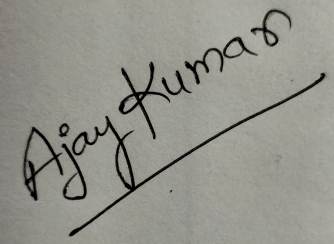 Ajay Kumar